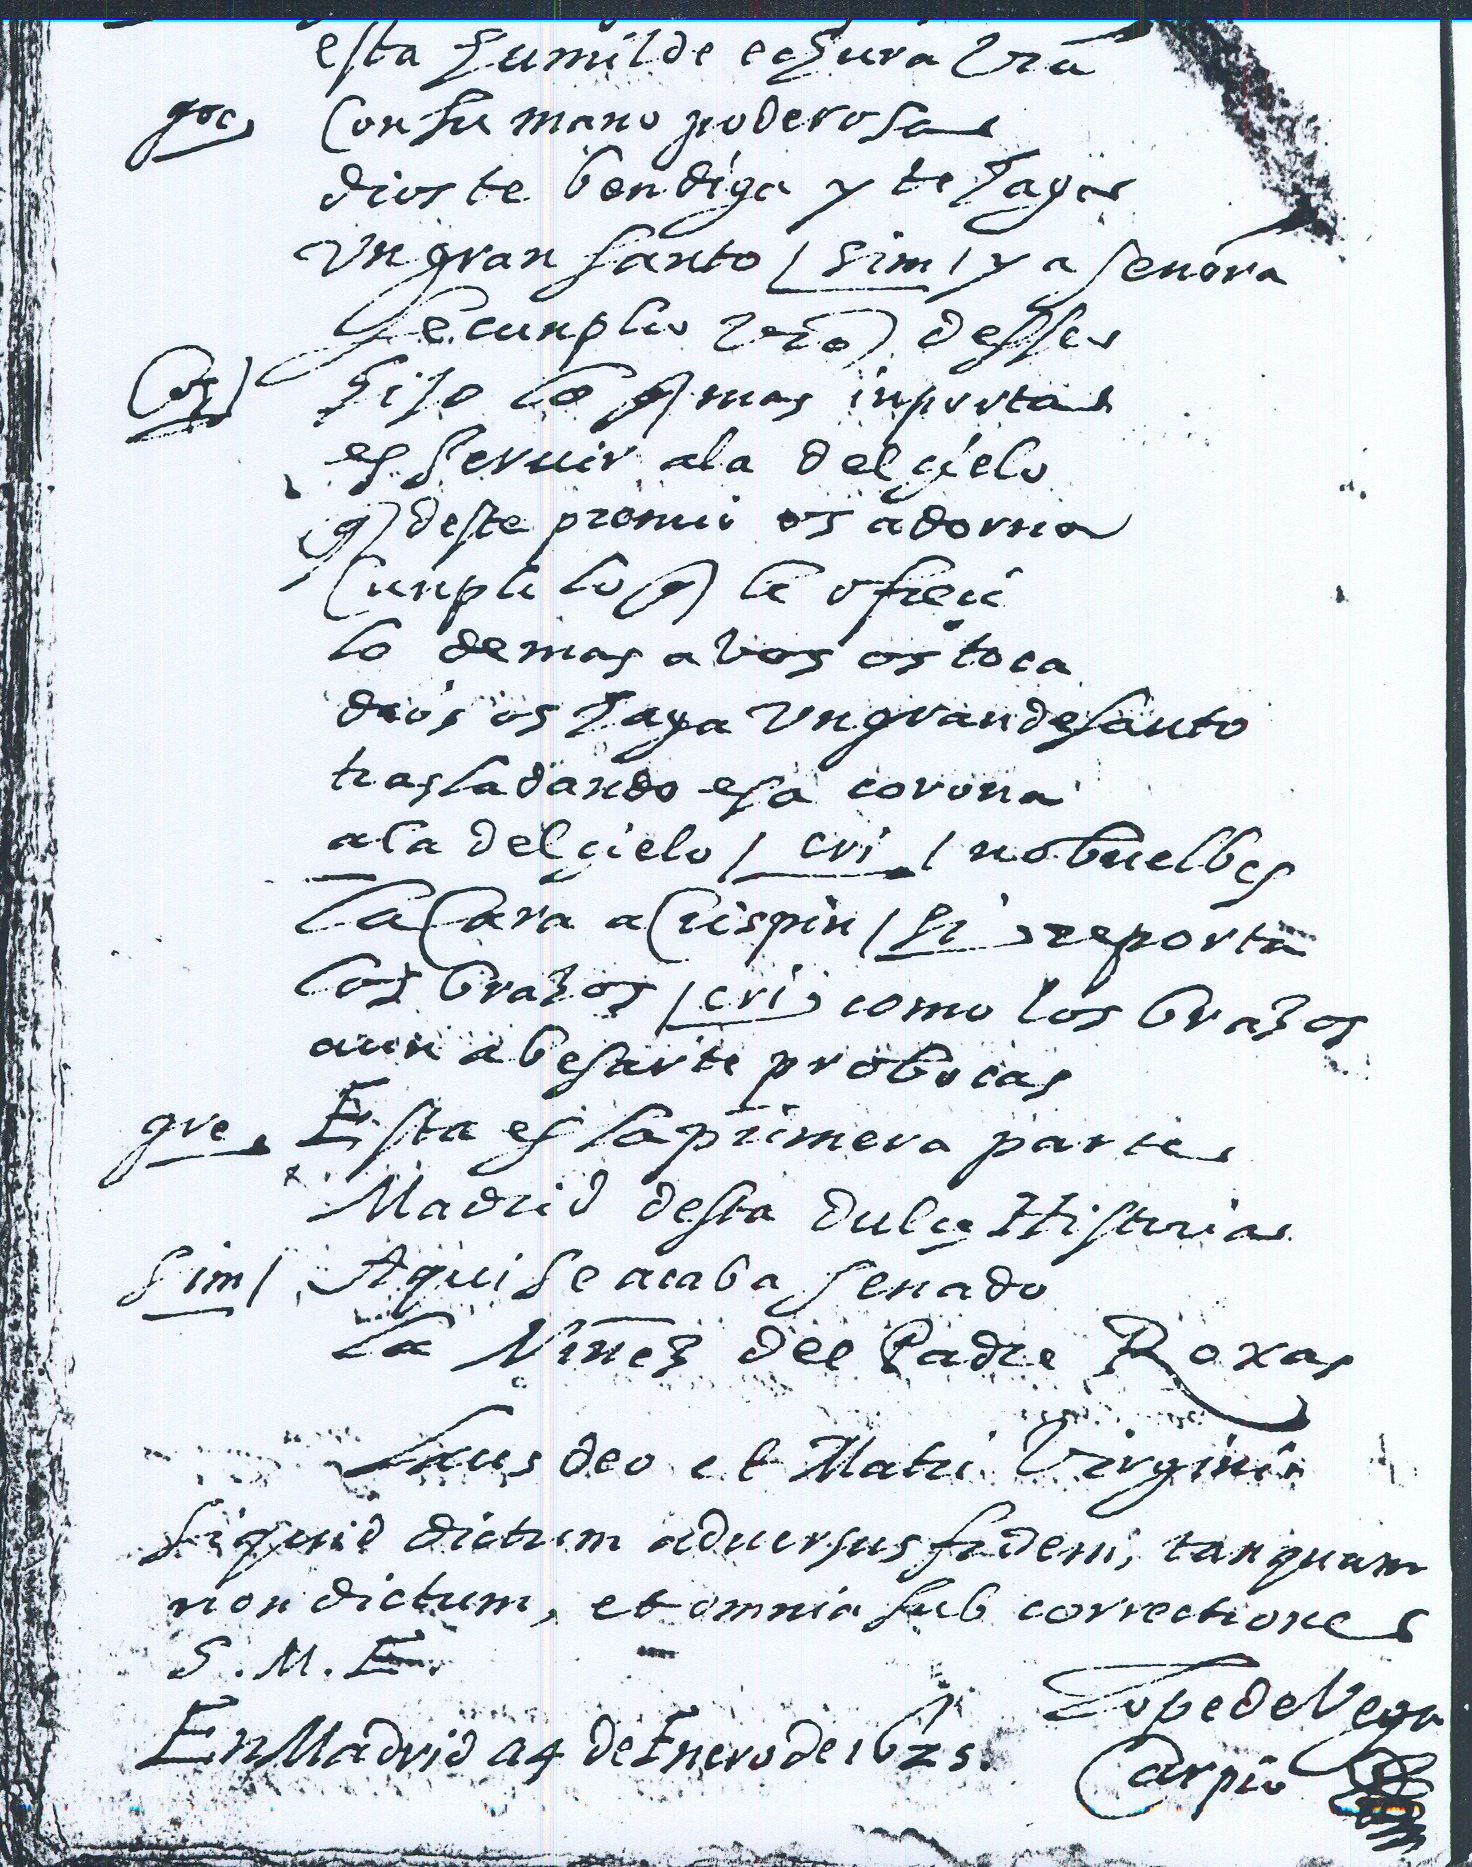 esta humilde echura vr̃a
gre, Con su mano poderosa
dios te bendiga y te haga
un gran santo / sim / y a señora
se cunplio vr̃o desseo
hijo lo q̃ mas inporta
es seruir a la del çielo
q̃ deste premio os adorna
Cunpli lo q̃ le ofreci
lo demas a vos os toca
dios os haga un grande santo
trasladando esa corona
a la del çielo / cri / no buelbes
la Cara a Crispin / si, reporta
los brazos / cri, como los brazos
aun a besarte probocas
gre, Esta es la primera parte
Madrid desta dulçe Historia
sim / Aqui se acaba senado
la Niñez del Padre Roxas
Laus deo et Matri Virgini
si quid dictum aduersus fidem, tanquam
non dictum, et omnia sub correctione
S. M. E.
En Madrid a 4 de Enero de 1625.
Lope de Vega
Carpio